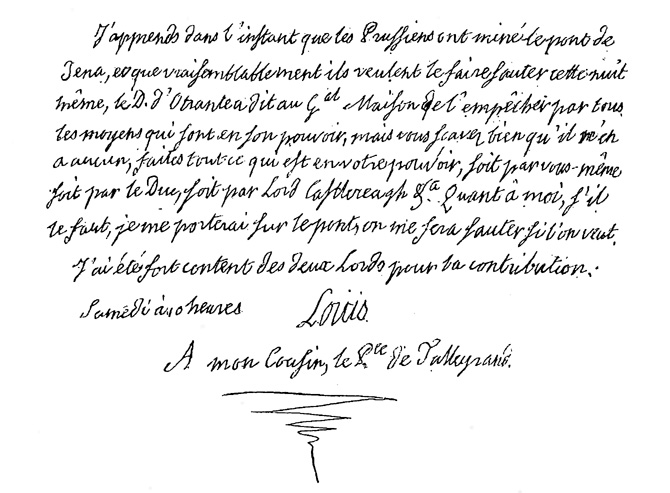 J'apprends dans l'instant que les Prussiens ont miné le pont de
Jena, et que vraisemblablement ils veulent le faire sauter cette nuit
même, le D. d'Otrante a dit au G.al Maison de l'empêcher par tous
les moyens qui sont en son pouvoir, mais vous scavez bien qu'il n'en
a aucun, faites tout ce qui est en votre pouvoir, soit par vous-même
soit par le Duc, soit par Lord Castlereagh &.a Quant à moi, s'il
le faut, je me porterai sur le pont, on me fera sauter si l'on veut.
J'ai été fort content des deux Lords pour la contribution.
Samedi à 10 heures Louis
A mon Cousin, le P.ce de Talleyrand.